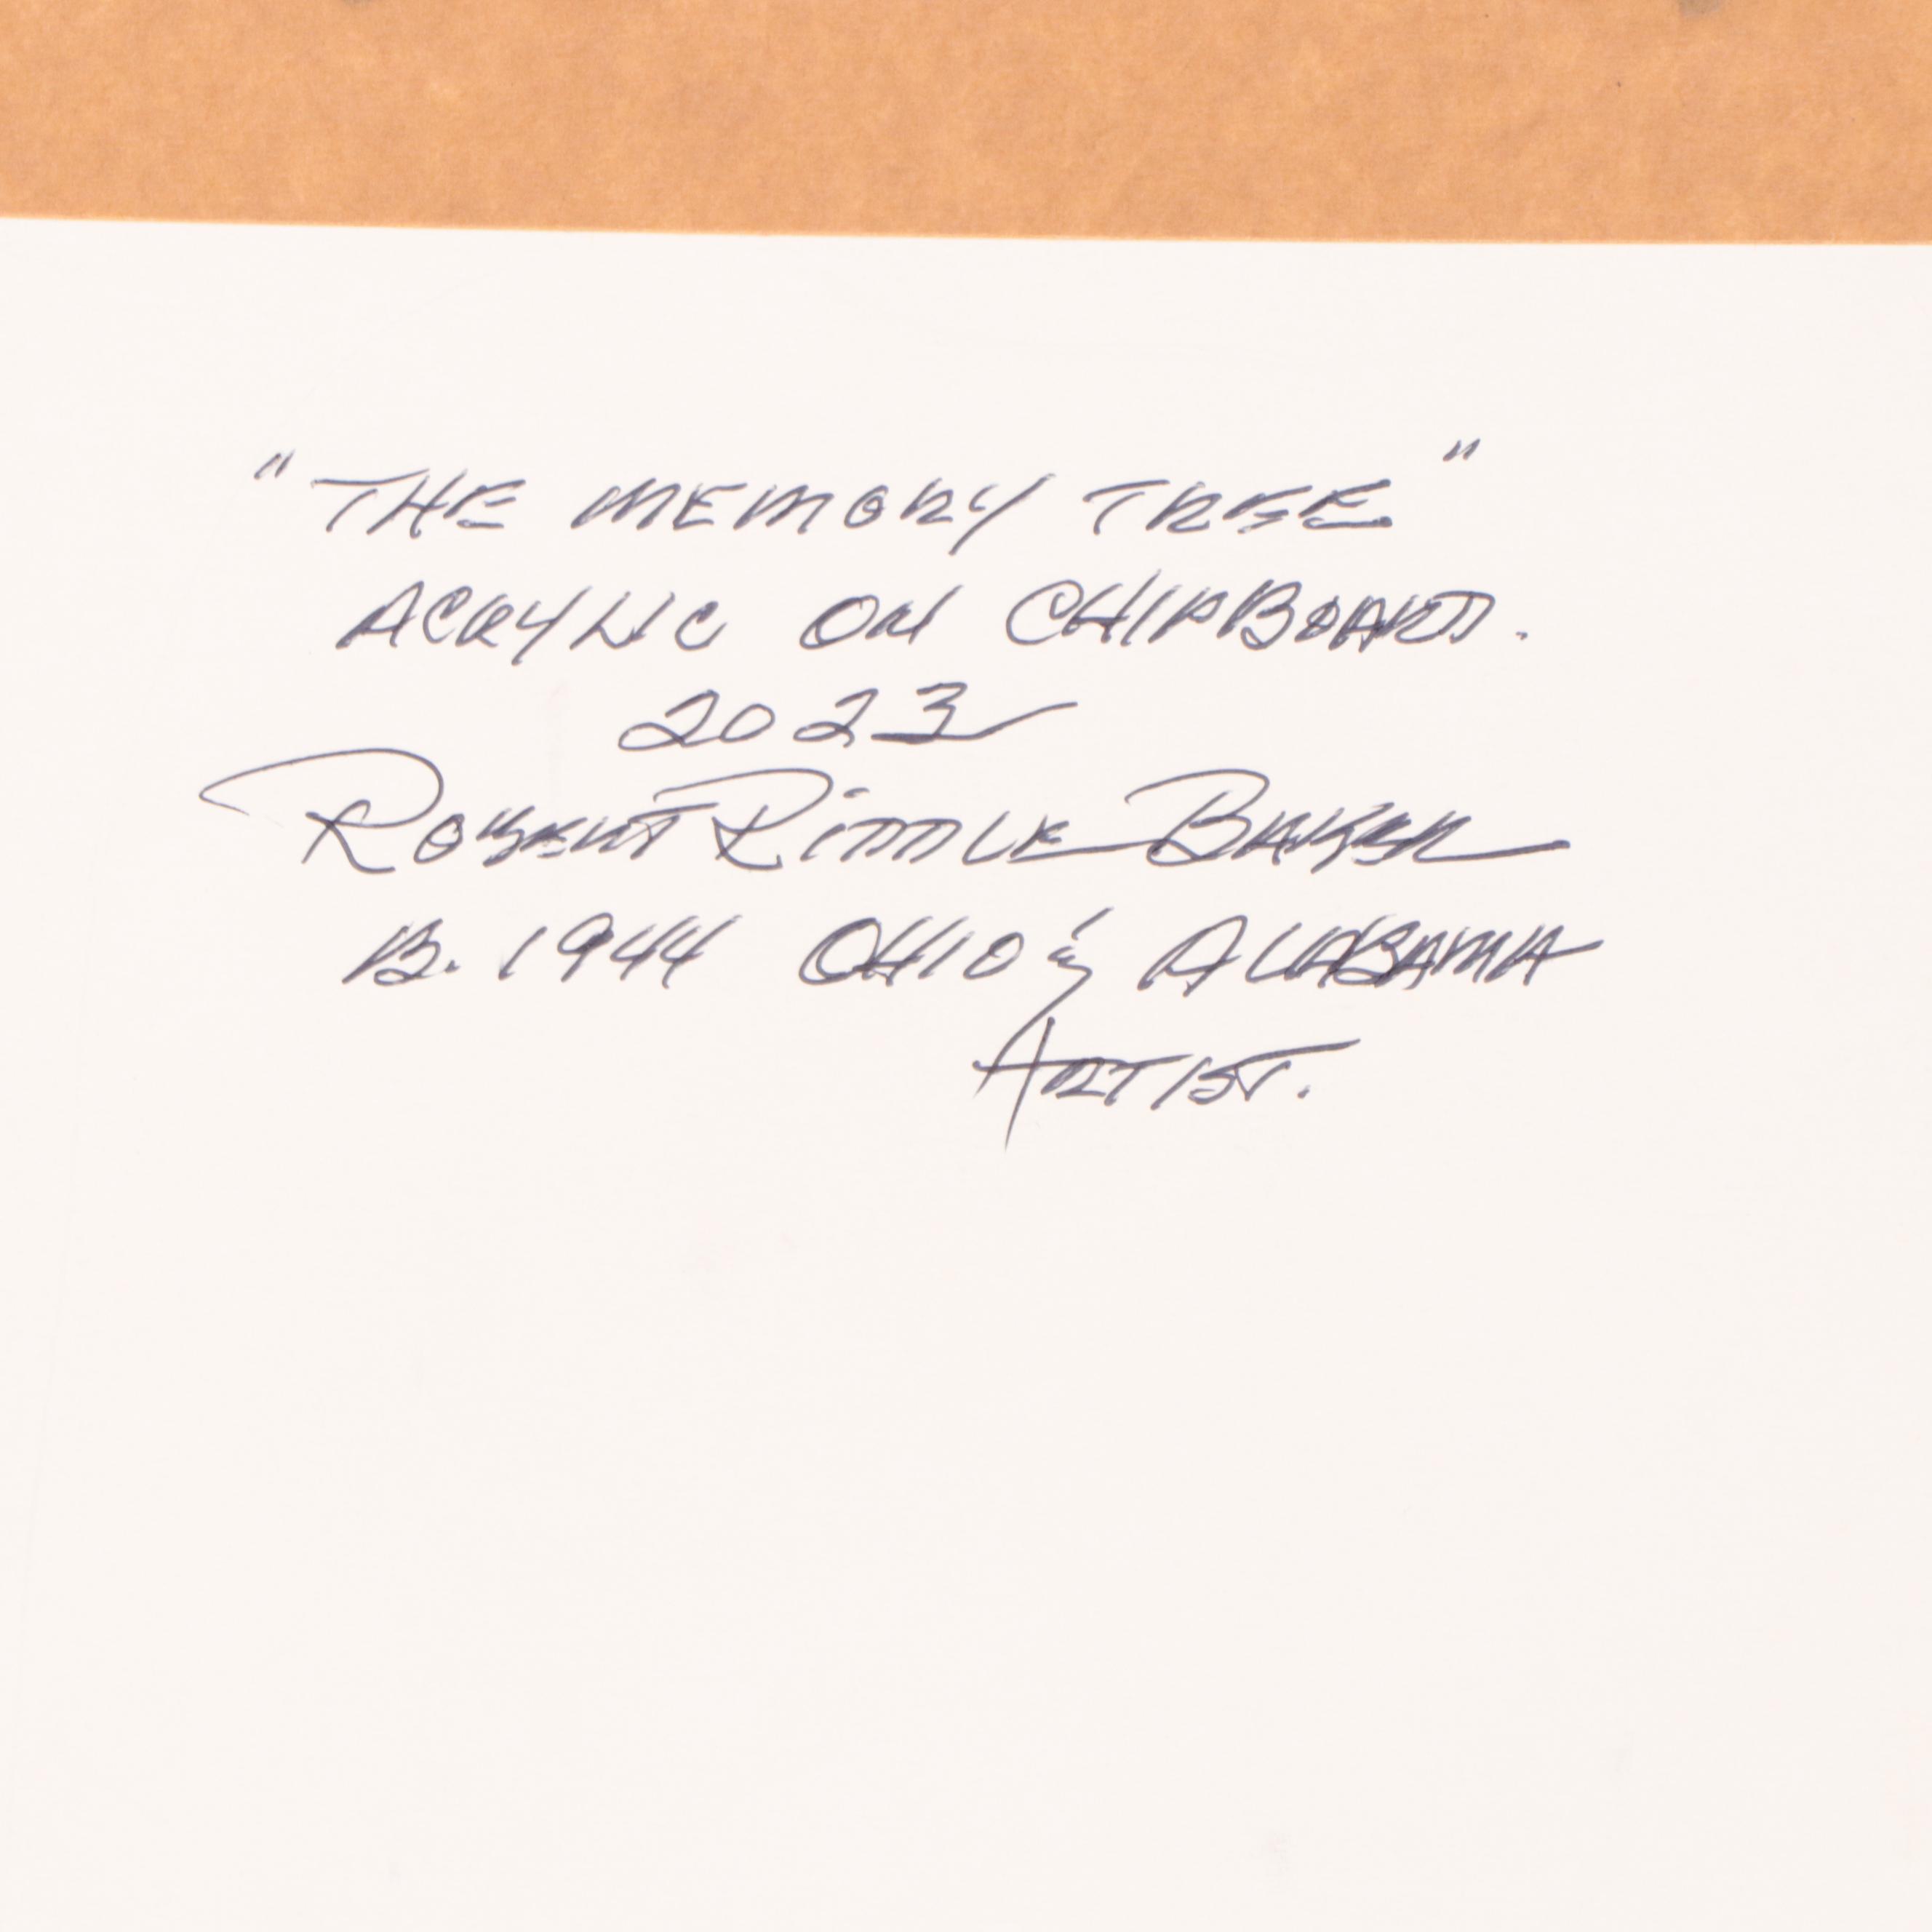 "THE MEMORY TREE"
ACRYLIC ON CHIPBOARD.
2023
ROBERT RIDDLE BAKER
B. 1944 OHIO & ALABAMA
ARTIST.